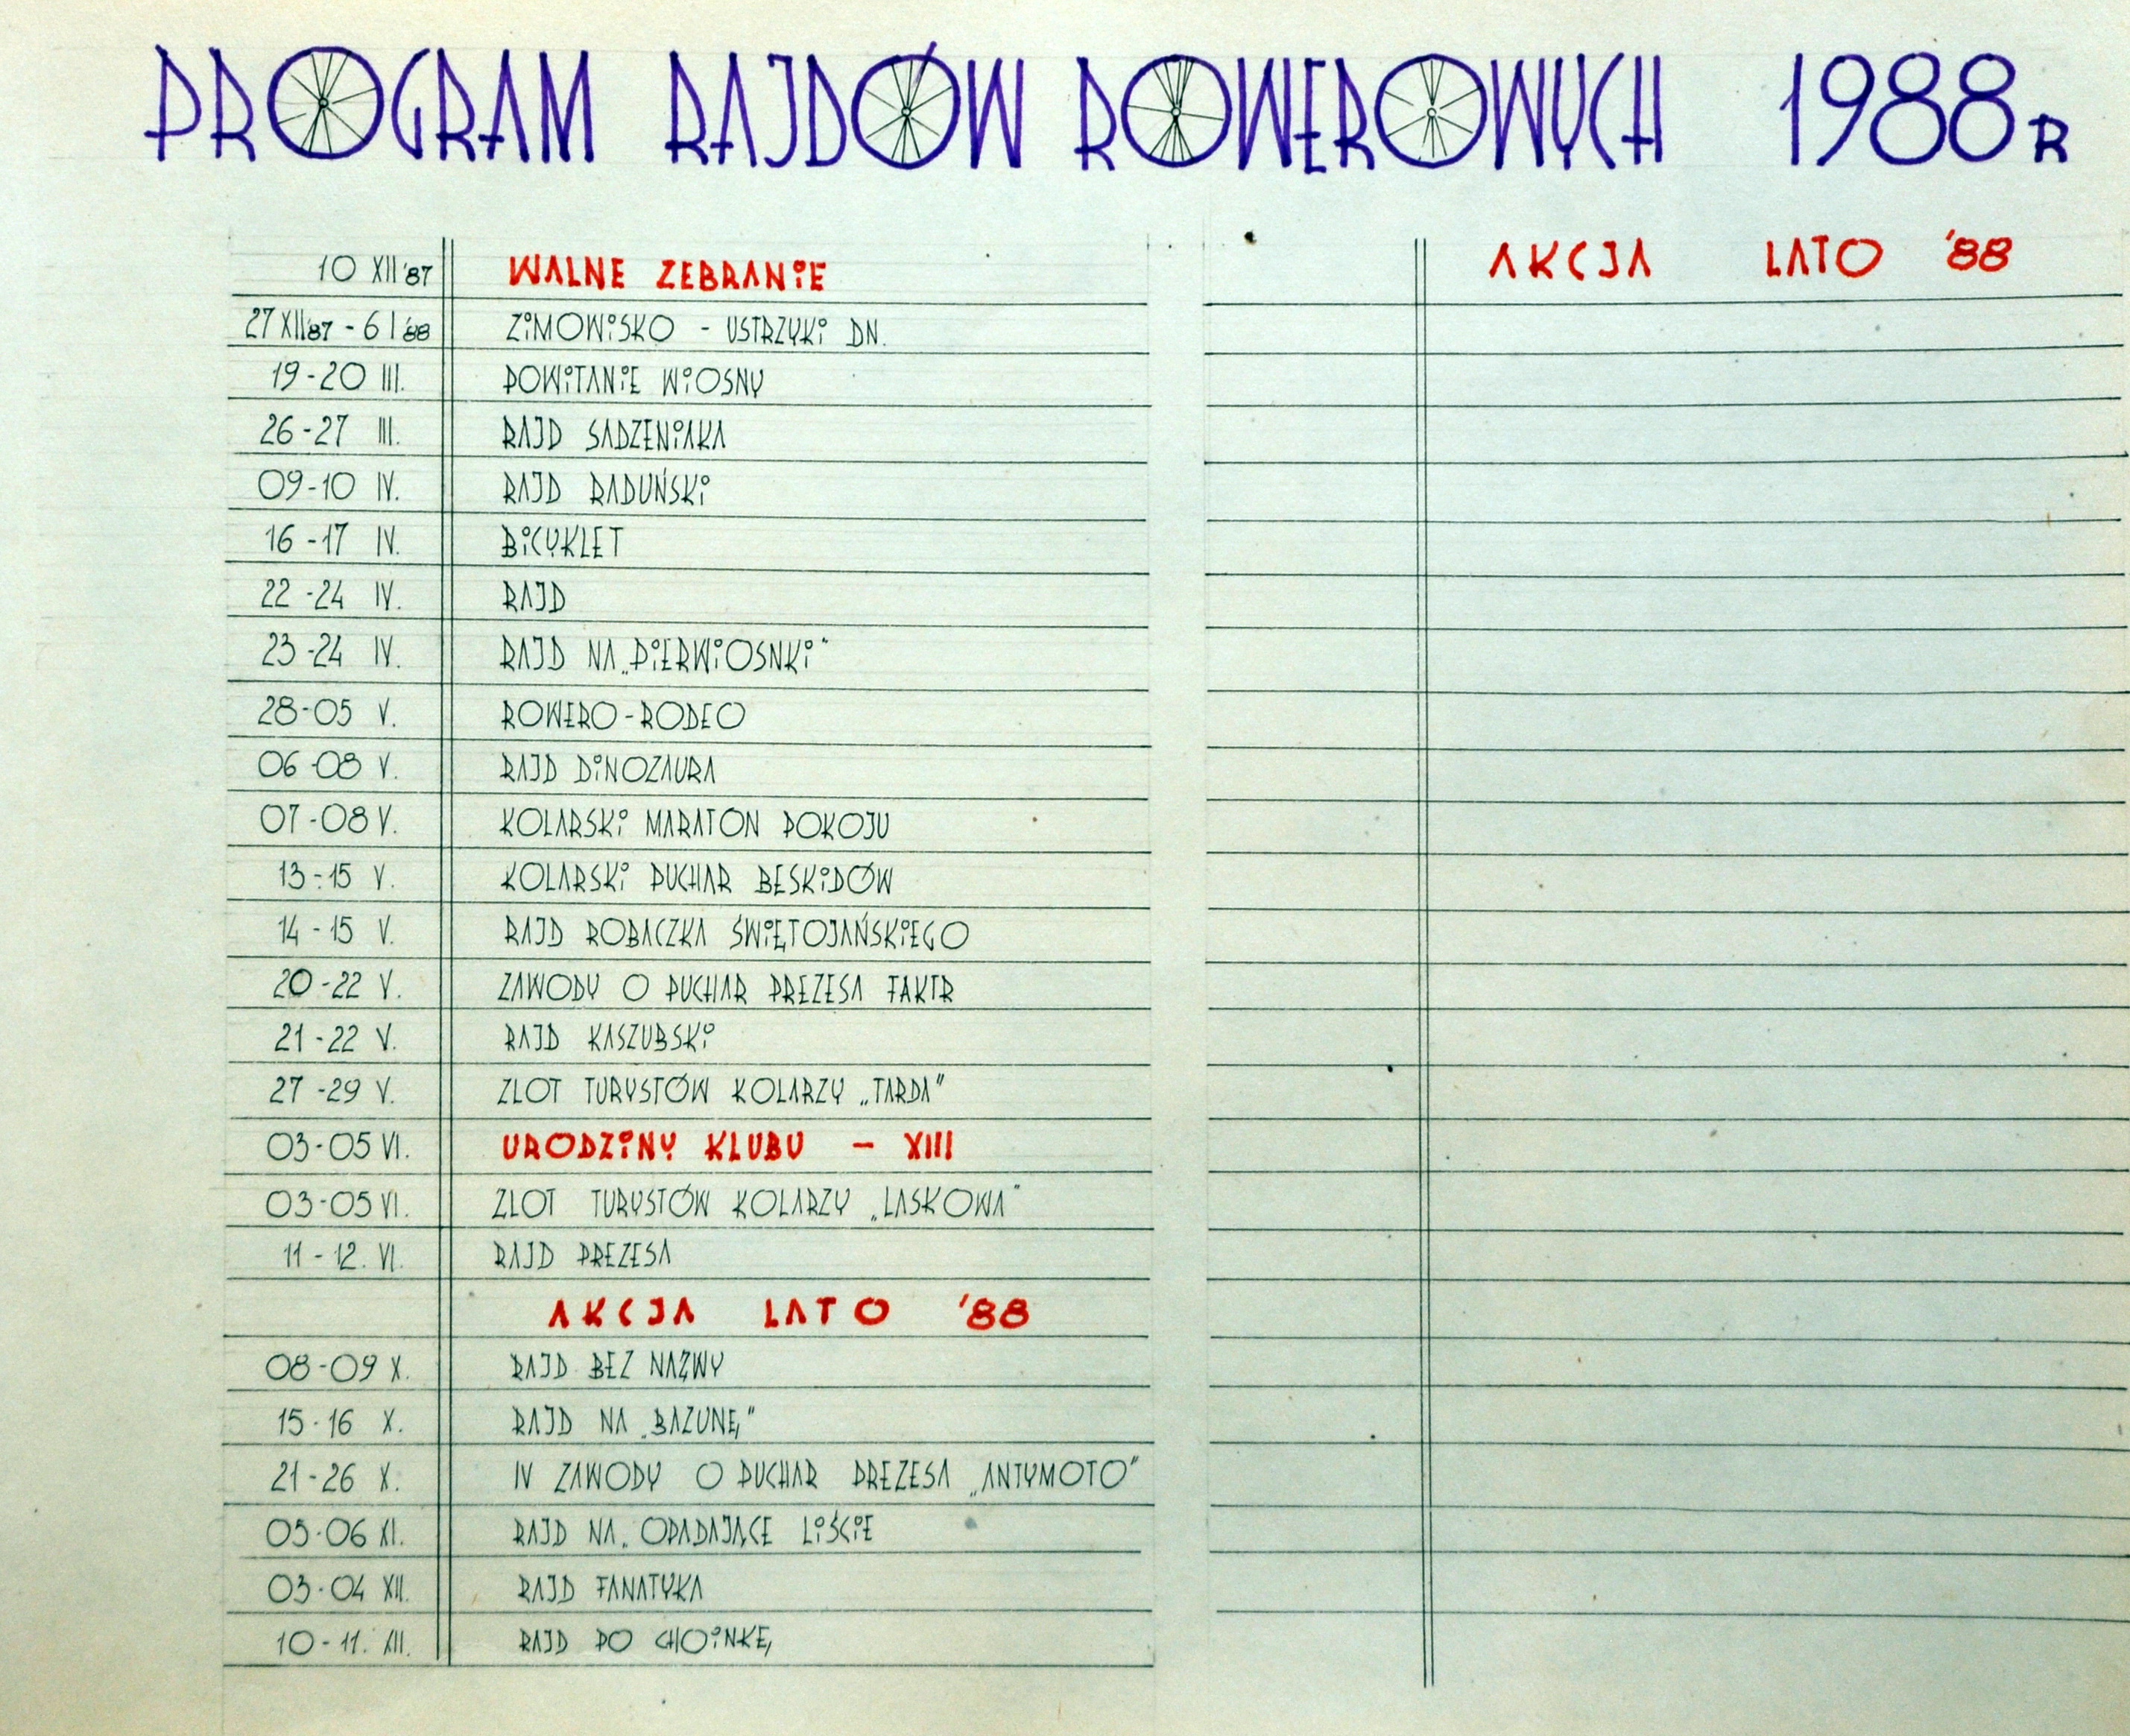 PROGRAM RAJDÓW ROWEROWYCH 1988R
10 XII'87 WALNE ZEBRANiE
27 XII'87 - 6 I '88 ZiMOWiSKO - USTRZYKi DN.
19-20 III. POWiTANiE WiOSNY
26-27 III. RAJD SADZENiAKA
09-10 IV. RAJD RADUŃSKi
16-17 IV. BiCYKLET
22-24 IV. RAJD
23-24 IV. RAJD NA „PiERWiOSNKi"
28-05 V. ROWERO-RODEO
06-08 V. RAJD DiNOZAURA
07-08 V. KOLARSKi MARATON POKOJU
13-15 V. KOLARSKi PUCHAR BESKiDÓW
14-15 V. RAJD ROBACZKA ŚWiĘTOJAŃSKiEGO
20-22 V. ZAWODY O PUCHAR PREZESA TAKTR
21-22 V. RAJD KASZUBSKi
27-29 V. ZLOT TURYSTÓW KOLARZY „TARDA"
03-05 VI. URODZiNY KLUBU - XIII
03-05 VI. ZLOT TURYSTÓW KOLARZY „LASKOWA"
11-12. VI. RAJD PREZESA
AKCJA LATO '88
08-09 X. RAJD BEZ NAZWY
15-16 X. RAJD NA „BAZUNĘ"
21-26 X. IV ZAWODY O PUCHAR PREZESA „ANTYMOTO"
05-06 XI. RAJD NA „OPADAJĄCE LiŚCiE
03-04 XII. RAJD FANATYKA
10-11. XII. RAJD PO CHOiNKĘ
AKCJA LATO '88